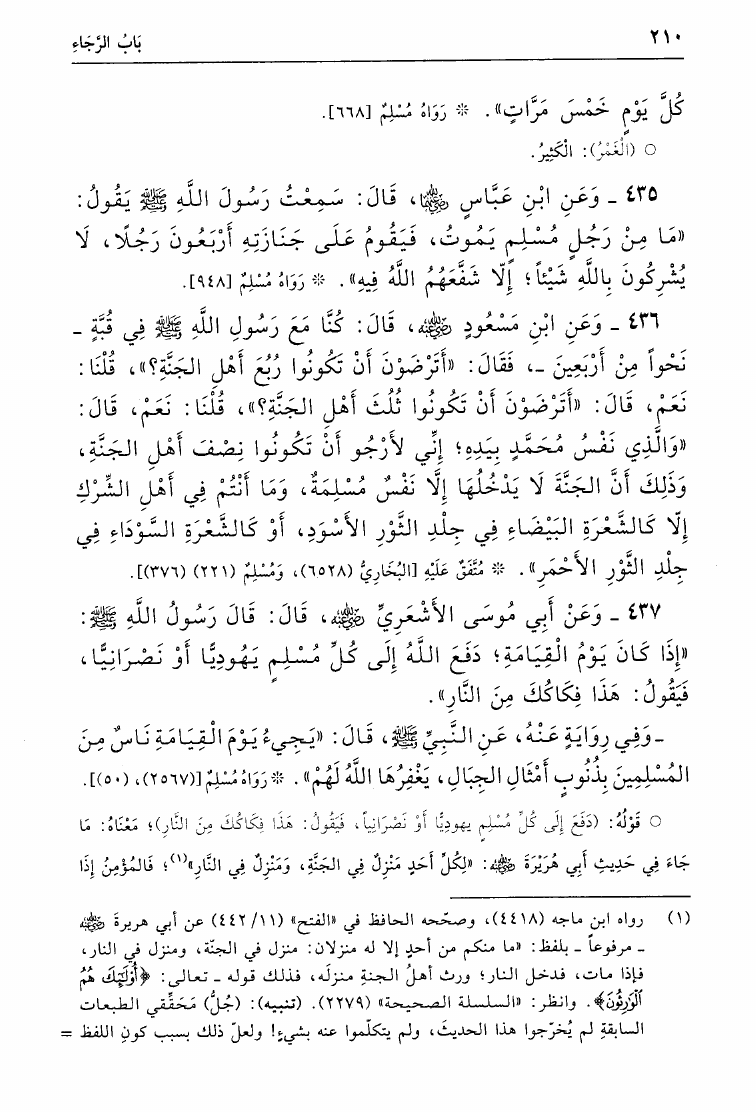 ٢١٠ بَابُ الرَّجَاءِ
كُلَّ يَوْمٍ خَمْسَ مَرَّاتٍ». * رَوَاهُ مُسْلِمٌ [٦٦٨].
○ (الْغَمْرُ): الْكَثِيرُ.
٤٣٥ ـ وَعَنِ ابْنِ عَبَّاسٍ رضي الله عنهما، قَالَ: سَمِعْتُ رَسُولَ اللَّهِ ﷺ يَقُولُ:
«مَا مِنْ رَجُلٍ مُسْلِمٍ يَمُوتُ، فَيَقُومُ عَلَى جَنَازَتِهِ أَرْبَعُونَ رَجُلًا، لَا
يُشْرِكُونَ بِاللَّهِ شَيْئاً؛ إِلَّا شَفَّعَهُمُ اللَّهُ فِيهِ». * رَوَاهُ مُسْلِمٌ [٩٤٨].
٤٣٦ ـ وَعَنِ ابْنِ مَسْعُودٍ رضي الله عنه، قَالَ: كُنَّا مَعَ رَسُولِ اللَّهِ ﷺ فِي قُبَّةٍ ـ
نَحْواً مِنْ أَرْبَعِينَ ـ، فَقَالَ: «أَتَرْضَوْنَ أَنْ تَكُونُوا رُبُعَ أَهْلِ الجَنَّةِ؟»، قُلْنَا:
نَعَمْ، قَالَ: «أَتَرْضَوْنَ أَنْ تَكُونُوا ثُلُثَ أَهْلِ الجَنَّةِ؟»، قُلْنَا: نَعَمْ، قَالَ:
«وَالَّذِي نَفْسُ مُحَمَّدٍ بِيَدِهِ؛ إِنِّي لأَرْجُو أَنْ تَكُونُوا نِصْفَ أَهْلِ الجَنَّةِ،
وَذَلِكَ أَنَّ الجَنَّةَ لَا يَدْخُلُهَا إِلَّا نَفْسٌ مُسْلِمَةٌ، وَمَا أَنْتُمْ فِي أَهْلِ الشِّرْكِ
إِلَّا كَالشَّعْرَةِ البَيْضَاءِ فِي جِلْدِ الثَّوْرِ الأَسْوَدِ، أَوْ كَالشَّعْرَةِ السَّوْدَاءِ فِي
جِلْدِ الثَّوْرِ الأَحْمَرِ». * مُتَّفَقٌ عَلَيْهِ [البُخَارِيُّ (٦٥٢٨)، وَمُسْلِمٌ (٢٢١) (٣٧٦)].
٤٣٧ ـ وَعَنْ أَبِي مُوسَى الأَشْعَرِيِّ رضي الله عنه، قَالَ: قَالَ رَسُولُ اللَّهِ ﷺ:
«إِذَا كَانَ يَوْمُ الْقِيَامَةِ؛ دَفَعَ اللَّهُ إِلَى كُلِّ مُسْلِمٍ يَهُودِيًّا أَوْ نَصْرَانِيًّا،
فَيَقُولُ: هَذَا فِكَاكُكَ مِنَ النَّارِ».
ـ وَفِي رِوَايَةٍ عَنْهُ، عَنِ النَّبِيِّ ﷺ، قَالَ: «يَجِيءُ يَوْمَ الْقِيَامَةِ نَاسٌ مِنَ
المُسْلِمِينَ بِذُنُوبٍ أَمْثَالِ الجِبَالِ، يَغْفِرُهَا اللَّهُ لَهُمْ». * رَوَاهُ مُسْلِمٌ [(٢٥٦٧)، (٥٠)].
○ قَوْلُهُ: (دَفَعَ إِلَى كُلِّ مُسْلِمٍ يهودِيًّا أَوْ نَصْرَانِياً، فَيَقُولُ: هَذَا فِكَاكُكَ مِنَ النَّارِ)؛ مَعْنَاهُ: مَا
جَاءَ فِي حَدِيثِ أَبِي هُرَيْرَةَ رضي الله عنه: «لِكُلِّ أَحَدٍ مَنْزِلٌ فِي الجَنَّةِ، وَمَنْزِلٌ فِي النَّارِ»(١)؛ فَالمُؤْمِنُ إِذَا
(١) رواه ابن ماجه (٤٤١٨)، وصحّحه الحافظ في «الفتح» (١١/٤٤٢) عن أبي هريرةَ رضي الله عنه
ـ مرفوعاً ـ بلفظ: «ما منكم من أحدٍ إلا له منزلان: منزل في الجنّة، ومنزل في النار،
فإذا مات، فدخل النار؛ ورث أهلُ الجنةِ منزلَه، فذلك قوله ـ تعالى: ﴿أُوْلَٰٓئِكَ هُمُ
ٱلْوَٰرِثُونَ﴾. وانظر: «السلسلة الصحيحة» (٢٢٧٩). (تنبيه): (جُلُّ) مَحَقِّقي الطبعات
السابقةِ لم يُخرّجوا هذا الحديثَ، ولم يتكلّموا عنه بشيءٍ! ولعلّ ذلك بسبب كونِ اللفظ =